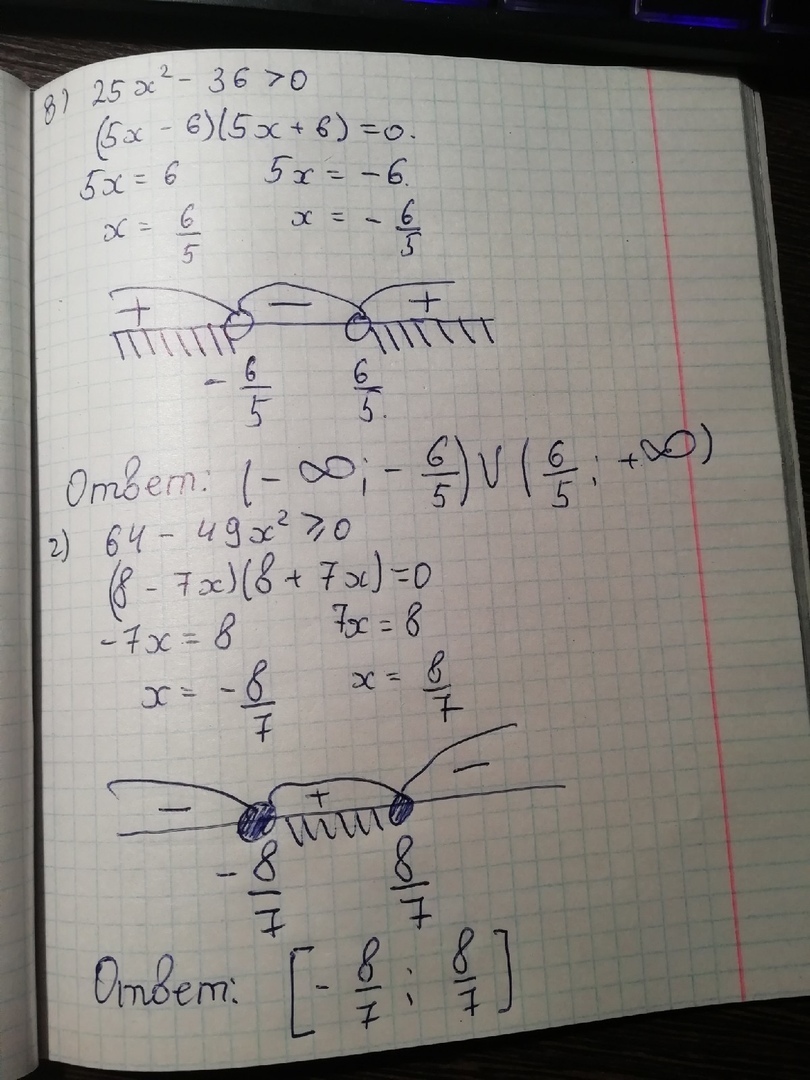 в) 25x² - 36 > 0
(5x - 6)(5x + 6) = 0.
5x = 6 5x = -6.
x = 6/5 x = - 6/5
+ − +
- 6/5 6/5.
Ответ: (- ∞; - 6/5) ∪ (6/5; +∞)
г) 64 - 49x² ⩾ 0
(8 - 7x)(8 + 7x) = 0
-7x = 8 7x = 8
x = - 8/7 x = 8/7
− + −
- 8/7 8/7
Ответ: [- 8/7; 8/7]